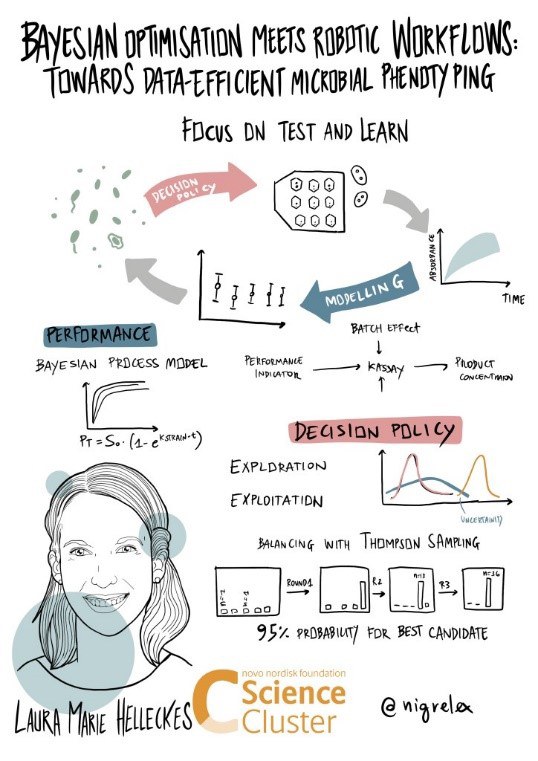 BAYESIAN OPTIMISATION MEETS ROBOTIC WORKFLOWS:
TOWARDS DATA-EFFICIENT MICROBIAL PHENOTYPING
FOCUS ON TEST AND LEARN
DECISION
POLICY
ABSORBANCE
TIME
MODELLING
PERFORMANCE
BAYESIAN PROCESS MODEL
BATCH EFFECT
PERFORMANCE
INDICATOR
KASSAY
PRODUCT
CONCENTRATION
PT = S0 · (1-e^KSTRAIN·t)
DECISION POLICY
EXPLORATION
EXPLOITATION
UNCERTAINTY
BALANCING WITH THOMPSON SAMPLING
ROUND1
R2
n=11
R3
n=16
95% PROBABILITY FOR BEST CANDIDATE
LAURA MARIE HELLECKES
novo nordisk foundation
Science
Cluster
@nigrelex